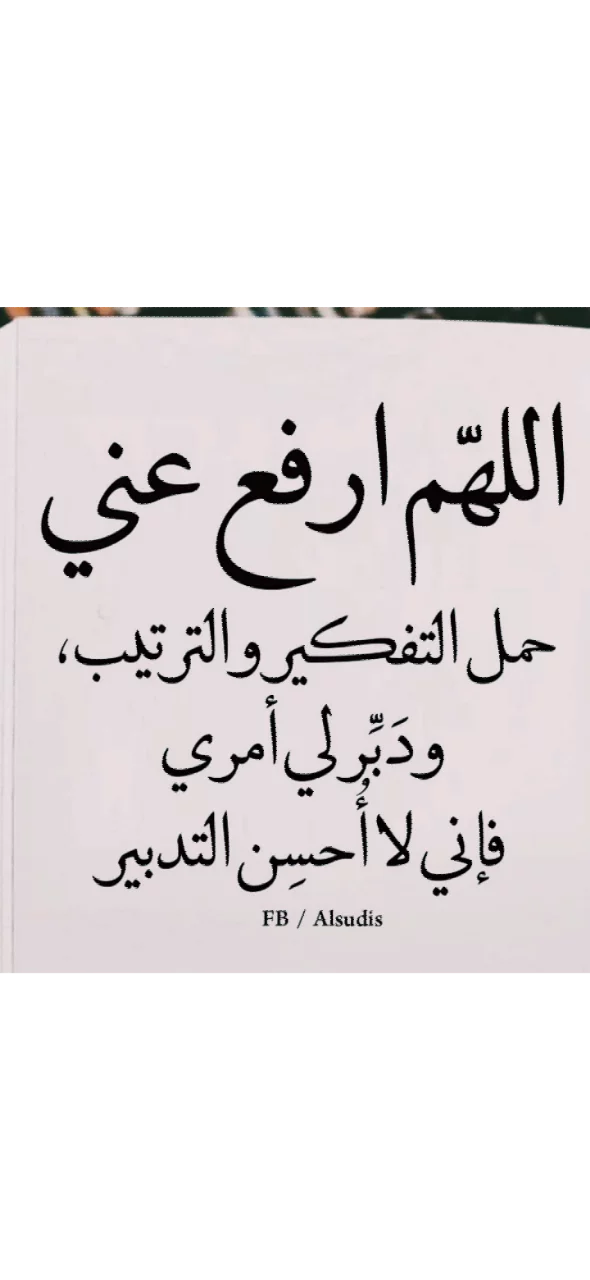 اللهّم ارفع عني
حمل التفكير والترتيب،
ودَبِّر لي أمري
فإني لا أُحسِن التدبير
FB / Alsudis